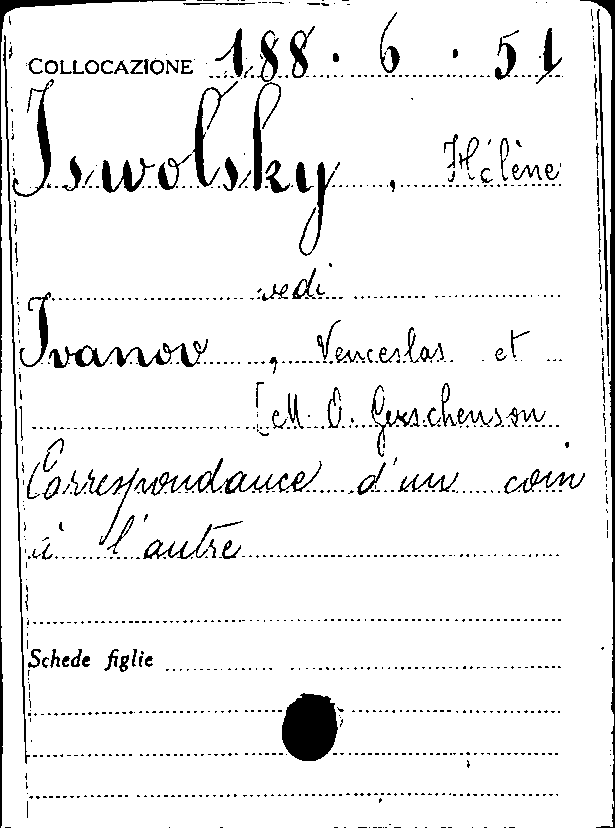 COLLOCAZIONE 188. 6. 51
Iswolsky, Hélène
vedi
Ivanov, Venceslas et
[M. O. Gerschenson
Correspondance d'un coin
à l'autre
Schede figlie